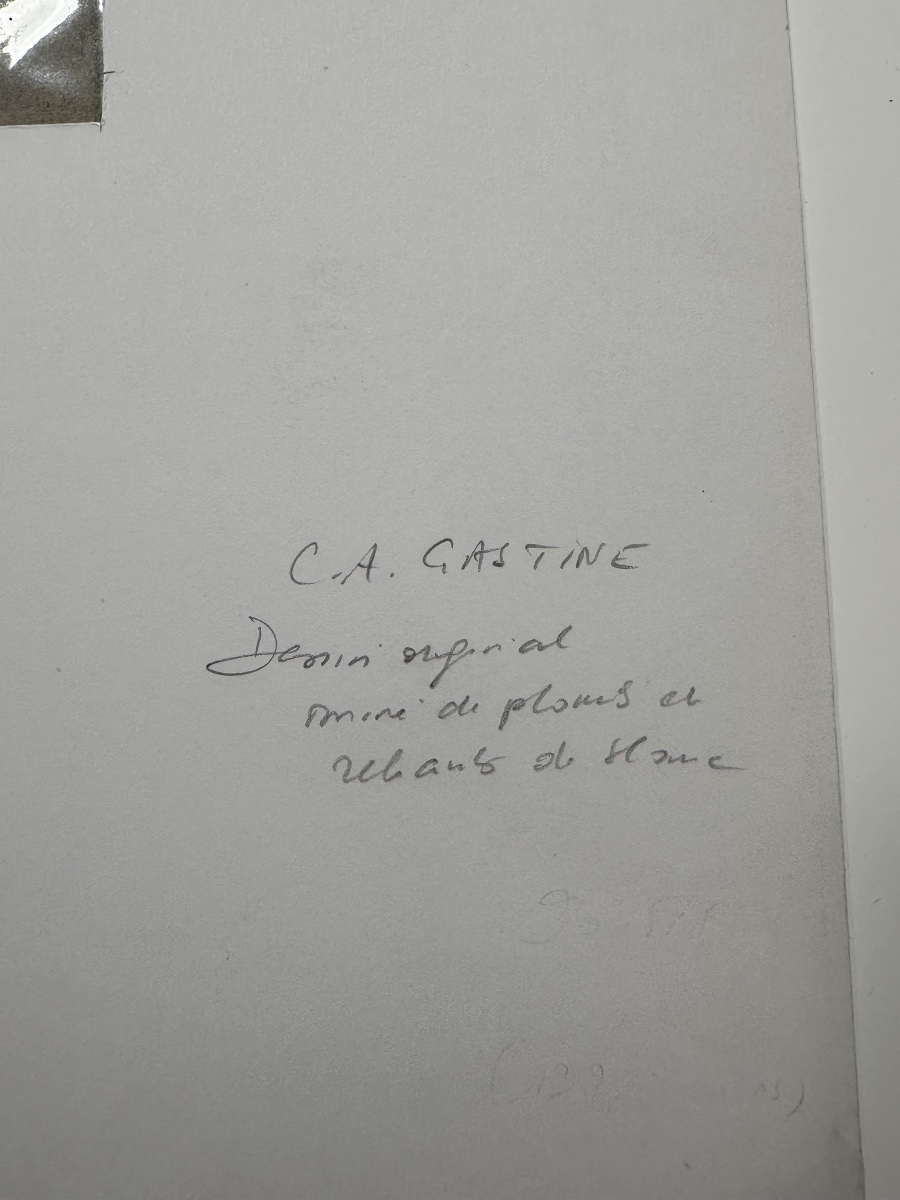 C.A. GASTINE
Dessin original
mine de plomb et
rehauts de blanc